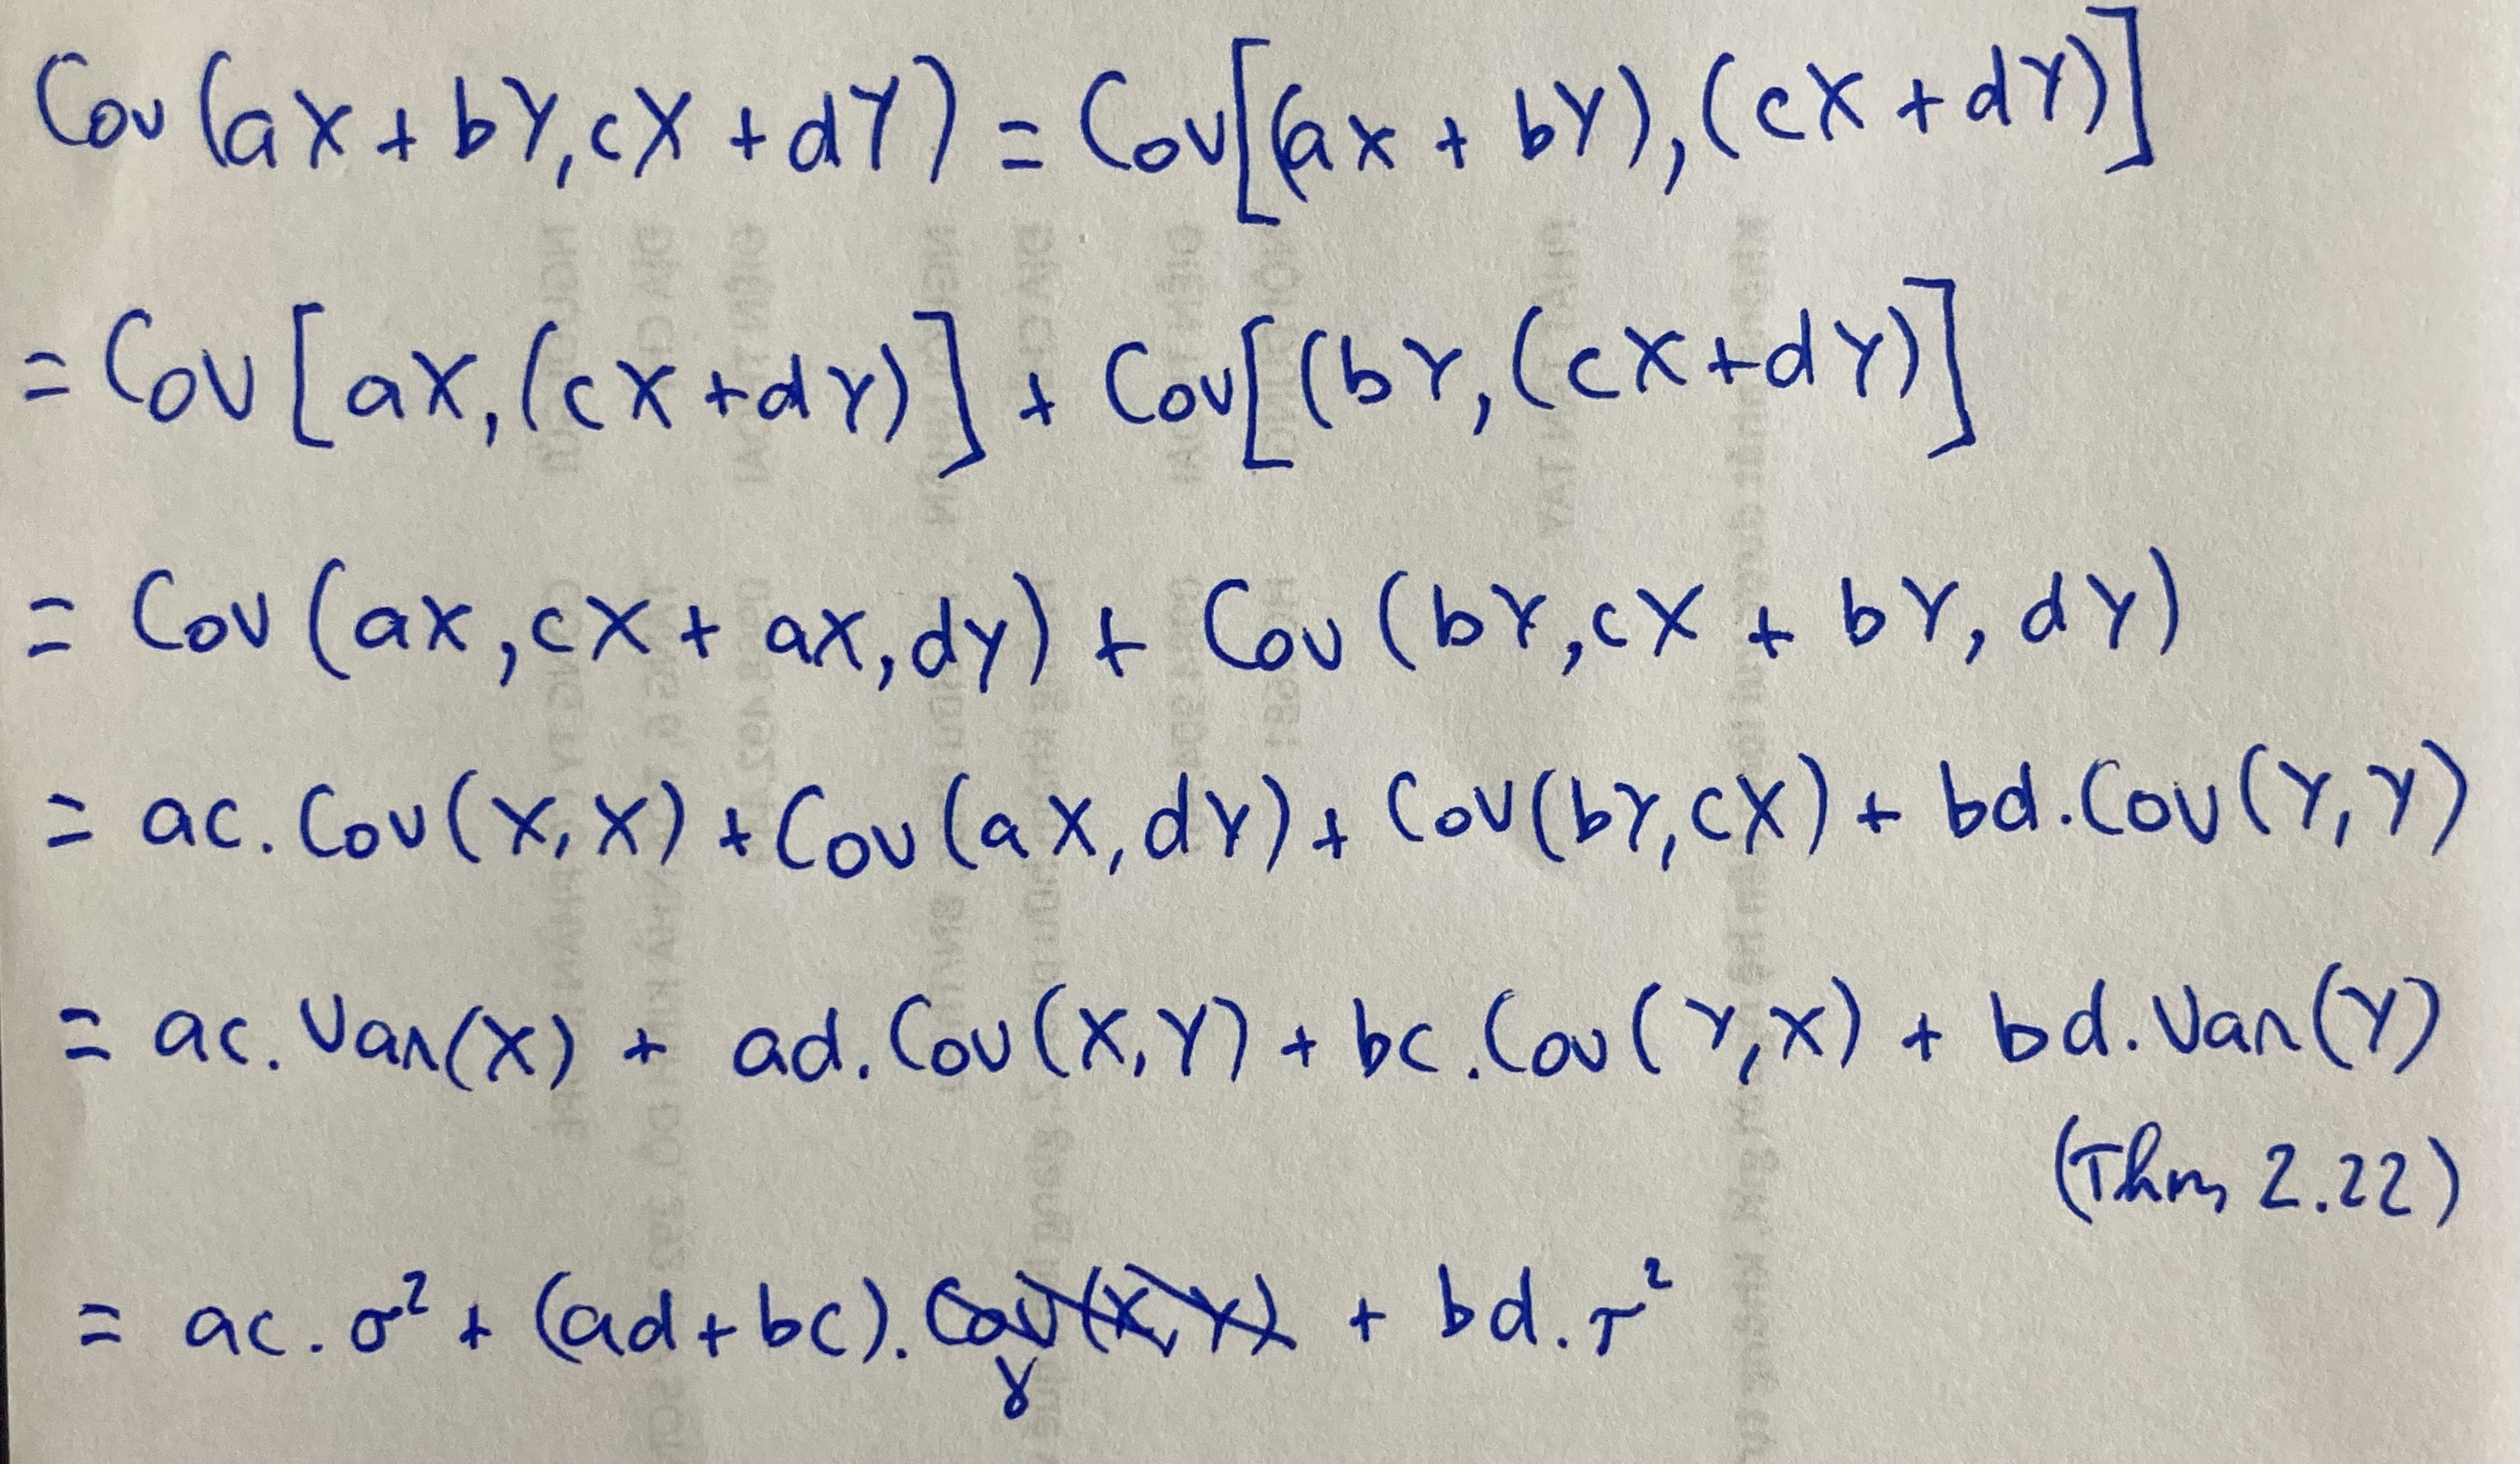 Cov (aX + bY, cX + dY) = Cov[(aX + bY), (cX + dY)]
= Cov [aX, (cX + dY)] + Cov[(bY, (cX + dY)]
= Cov (aX, cX + aX, dY) + Cov (bY, cX + bY, dY)
= ac. Cov (X, X) + Cov (aX, dY) + Cov (bY, cX) + bd. Cov (Y, Y)
= ac. Var(X) + ad. Cov (X, Y) + bc. Cov (Y, X) + bd. Var(Y)
(Thm 2.22)
= ac. σ² + (ad + bc). Cov (X, Y) + bd. τ²
γ